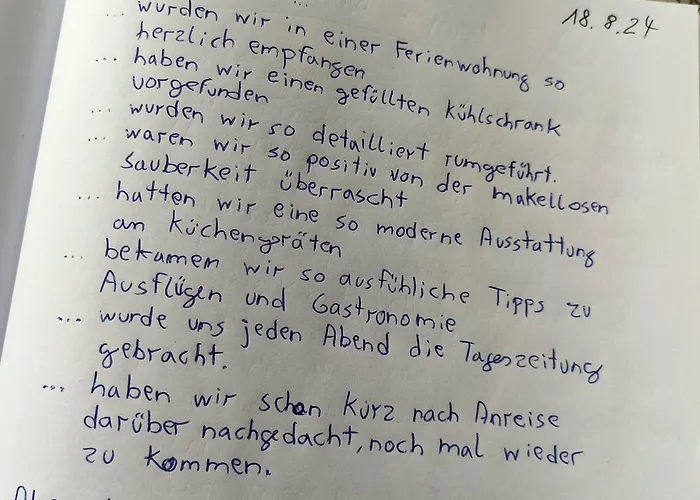 18.8.24
... wurden wir in einer Ferienwohnung so
herzlich empfangen
... haben wir einen gefüllten Kühlschrank
vorgefunden
... wurden wir so detailliert rumgeführt.
... waren wir so positiv von der makellosen
Sauberkeit überrascht
... hatten wir eine so moderne Ausstattung
an Küchengpräten
... bekamen wir so ausfühliche Tipps zu
Ausflügen und Gastronomie
... wurde uns jeden Abend die Tageszeitung
gebracht.
... haben wir schon kurz nach Anreise
darüber nachgedacht, noch mal wieder
zu kommen.